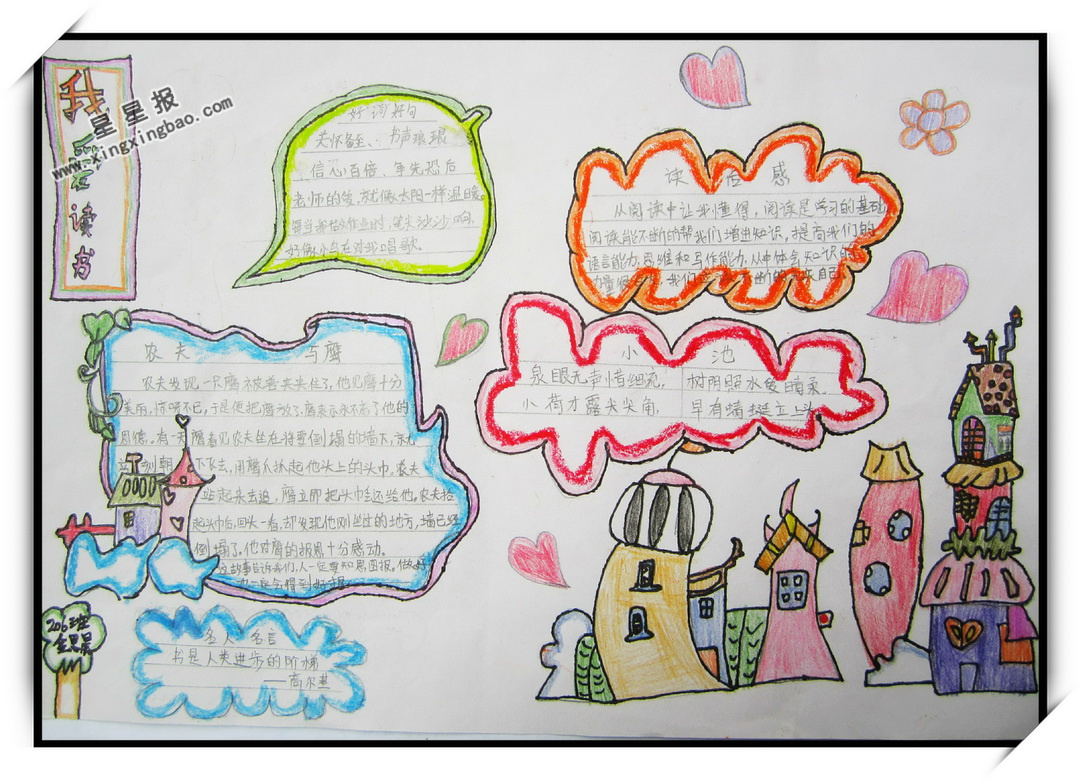 我爱读书
星星报
www.xingxingbao.com
好词好句
关怀备至、书声琅琅
信心百倍、争先恐后
老师的笑,就像太阳一样温暖。
每当我
作业时,笔尖沙沙响,
好像小鸟在对我唱歌。
读后感
从阅读中让我懂得,阅读是学习的基础
阅读能不断的帮我们增进知识,提高我们的
语言能力,思维和写作能力,从中体会知识的
力量
我们
不断的
自己
农夫与鹰
农夫发现一只鹰被兽夹夹住了,他见鹰十分
美丽,惊呀不已,于是便把鹰放了,鹰表示永不忘了他的
恩德。有一天鹰看见农夫坐在将要倒塌的墙下,就
立刻朝下飞去,用鹰爪抓起他头上的头巾,农夫
站起来去追,鹰立即把头巾还给他,农夫拾
起头巾后,回头一看,却发现他刚坐过的地方,墙已经
倒塌了。他对鹰的报恩十分感动。
这故事告诉我们,人一定要知恩图报。做好
会得到好报。
小池
泉眼无声惜细流, 树阴照水爱晴柔
小荷才露尖尖角, 早有蜻蜓立上头
206班
金
名人名言
书是人类进步的阶梯
——高尔基